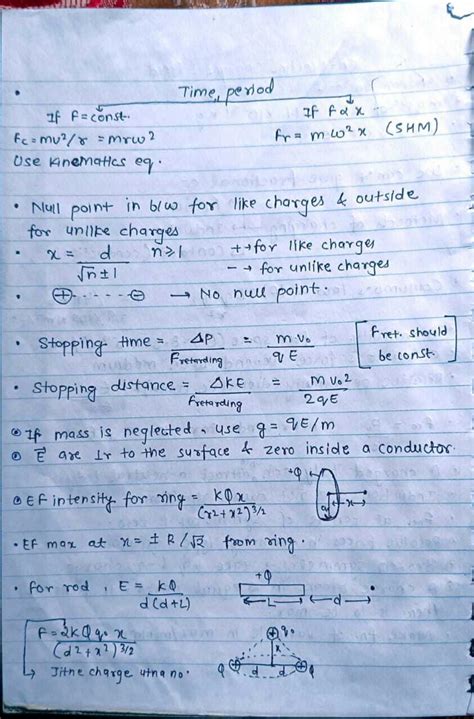 • Time period
If F = const.    If F ∝ x
Fc = mv²/r = mrω²    Fr = mω²x (SHM)
Use kinematics eq.
• Null point in b/w for like charges & outside
for unlike charges
• x = d/(√n ± 1)    n ≥ 1    + → for like charges
- → for unlike charges
• ⊕ ------ ⊖ → No null point.
• Stopping time = ΔP/Fretarding = mv₀/qE    [Fret. should
be const.]
• Stopping distance = ΔKE/Fretarding = mv₀2/2qE
• If mass is neglected, use g = qE/m
• E⃗ are ⊥r to the surface & zero inside a conductor.
• EF intensity for ring = KQx/(r²+x²)^3/2    +Q    x
• EF max at x = ± R/√2 from ring.
• For rod, E = KQ/d(d+L)    +Q    L    d
F = 2KQq₀x/(d²+x²)^3/2    q₀    x    Q    d    d    Q
↳ Jitne charge utna no.